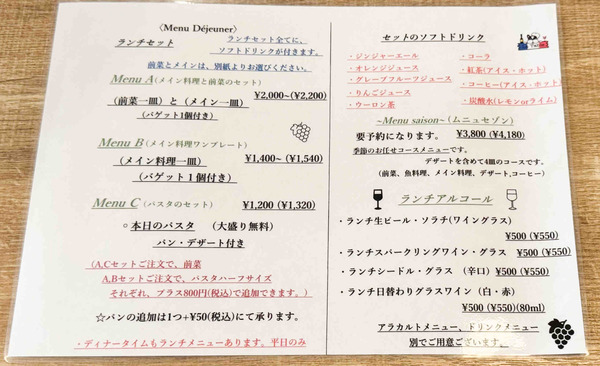 〈Menu Déjeuner〉
ランチセット
ランチセット全てに、
ソフトドリンクが付きます。
前菜とメインは、別紙よりお選びください。
Menu A(メイン料理と前菜のセット)
¥2,000~(¥2,200)
(前菜一皿) と (メイン一皿)
(バゲット1個付き)
Menu B (メイン料理ワンプレート)
(メイン料理一皿)
¥1,400~ (¥1,540)
(バゲット1個付き)
Menu C (パスタのセット)
¥1,200 (¥1,320)
○本日のパスタ (大盛り無料)
パン・デザート付き
(A,Cセットご注文で、前菜
A,Bセットご注文で、パスタハーフサイズ
それぞれ、プラス800円(税込)で追加できます。)
☆パンの追加は1つ+¥50(税込)にて承ります。
・ディナータイムもランチメニューあります。平日のみ
セットのソフトドリンク
・ジンジャーエール
・オレンジジュース
・グレープフルーツジュース
・りんごジュース
・ウーロン茶
・コーラ
・紅茶(アイス・ホット)
・コーヒー(アイス・ホット)
・炭酸水(レモンorライム)
~Menu saison~(ムニュセゾン)
要予約になります。 ¥3,800 (¥4,180)
季節のお任せコースメニューです。
デザートを含めて4皿のコースです。
(前菜、魚料理、メイン料理、デザート,コーヒー)
ランチアルコール
・ランチ生ビール・ソラチ(ワイングラス)
¥500 (¥550)
・ランチスパークリングワイン・グラス ¥500 (¥550)
・ランチシードル・グラス (辛口) ¥500 (¥550)
・ランチ日替わりグラスワイン (白・赤)
¥500 (¥550)(80ml)
アラカルトメニュー、ドリンクメニュー
別でご用意ございます。